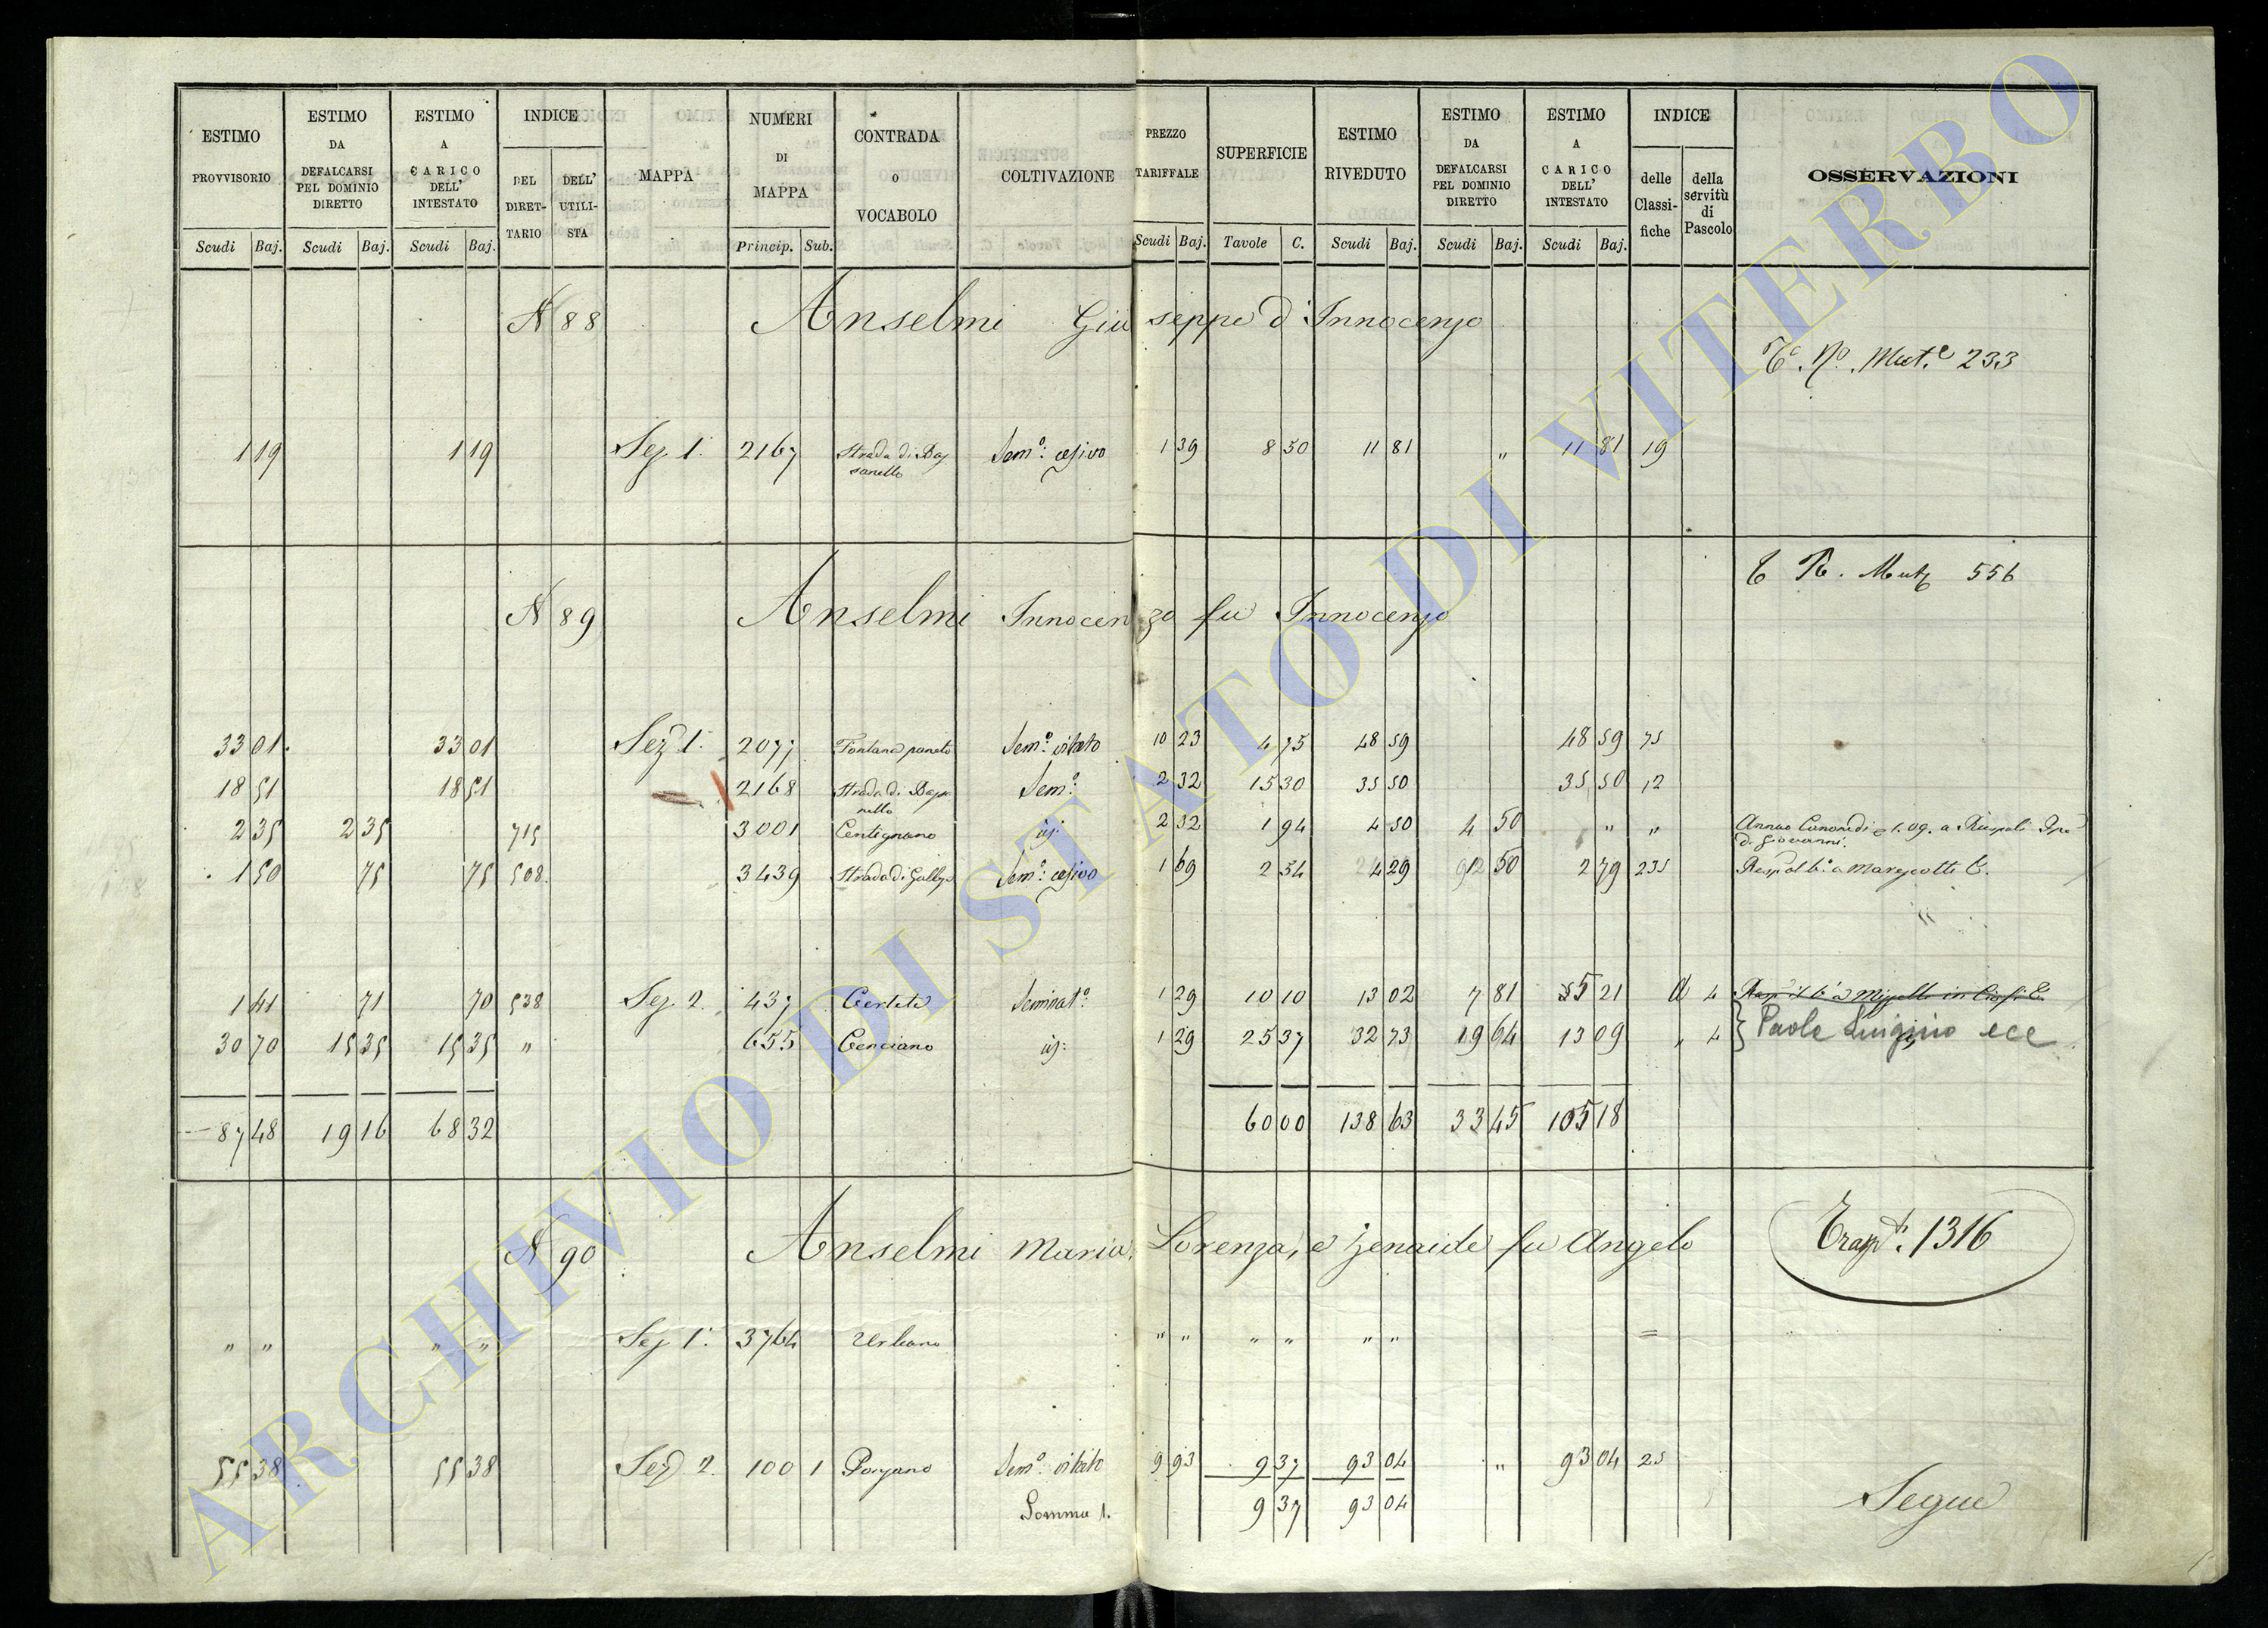 ESTIMO PROVVISORIO Scudi Baj. ESTIMO DA DEFALCARSI PEL DOMINIO DIRETTO Scudi Baj. ESTIMO A CARICO DELL' INTESTATO Scudi Baj. INDICE DEL DIRET-TARIO DELL' UTILI-STA MAPPA NUMERI DI MAPPA Princip. Sub. CONTRADA O VOCABOLO COLTIVAZIONE PREZZO TARIFFALE Scudi Baj. SUPERFICIE Tavole C. ESTIMO RIVEDUTO Scudi Baj. ESTIMO DA DEFALCARSI PEL DOMINIO DIRETTO Scudi Baj. ESTIMO A CARICO DELL' INTESTATO Scudi Baj. INDICE delle Classi-fiche della servitù di Pascolo OSSERVAZIONI
N 88 Anselmi Giuseppe d'Innocenzo
Mut.e 233
1 19 1 19 Sez. 1. 2167 Strada di Bas
sanello Sem.o: cesivo 1 39 8 50 11 81 " 11 81 19
556
N 89 Anselmi Innocenzo fu Innocenzo
33 01 33 01 Sez. 1. 2077 Sem.o vitato 10 23 4 75 48 59 48 59 75
18 51 18 51 2168 Strada di Bassa
nello Sem.o 2 32 15 30 35 50 35 50 12
2 35 2 35 715 3001 Centignano id: 2 32 1 94 4 50 4 50 " " Annuo Canone di 1.09. a Ruspoli
di Giovanni.
1 50 75 75 508 3439 Strada di Gallese Sem.o: cesivo 1 69 2 54 4 29 50 2 79 235 Marescotti
1 41 71 70 538 Sez. 2. 437 Seminat.o 1 29 10 10 13 02 7 81 5 21 4
30 70 15 35 15 35 " 655 Cenciano id: 1 29 25 37 32 73 19 64 13 09 " 4 Paole Luigino ecc
87 48 19 16 68 32 60 00 138 63 33 45 105 18
N 90 Anselmi Maria, Lorenza, e Zenaide fu Angelo Trasp. 1316
" " " " Sez. 1. 3764 Urbano " " " " " " =
55 38 55 38 Sez. 2. 100 1 Porzano Sem.o: vitato 9 93 9 37 93 04 " 93 04 25
Somma 1. 9 37 93 04 Segue
ARCHIVIO DI STATO DI VITERBO